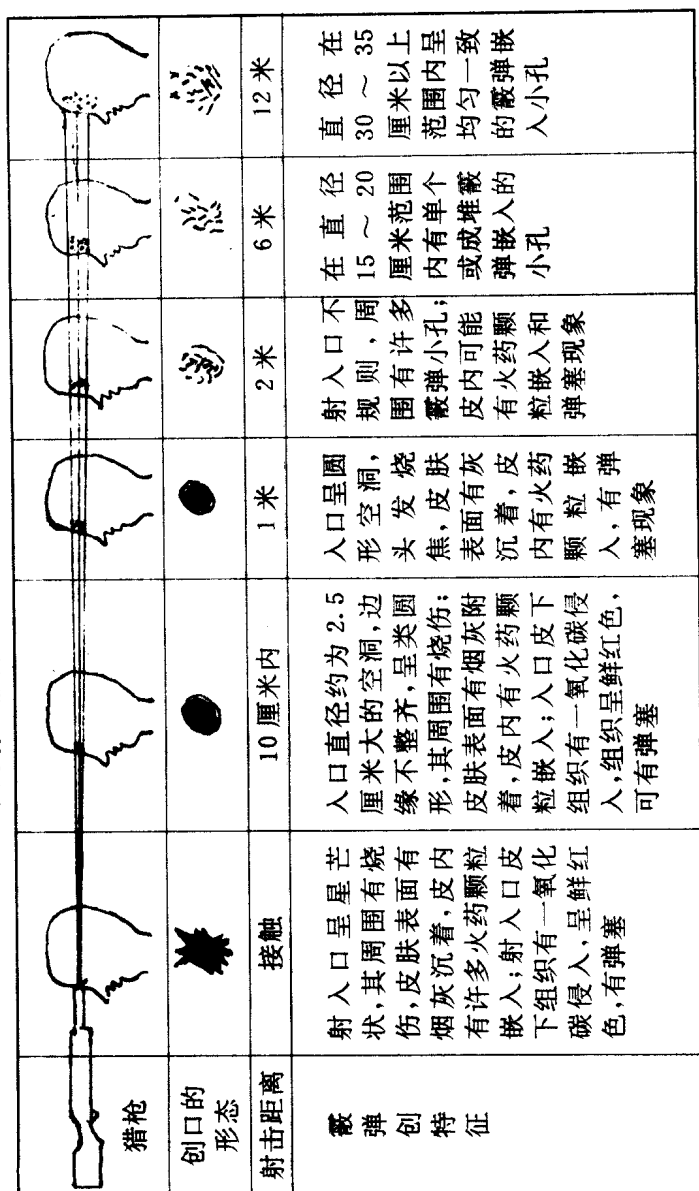 猎枪
创口的
形态
射击距离
接触
10厘米内
1米
2米
6米
12米
霰弹创特征
射入口呈星芒
状,其周围有烧
伤,皮肤表面有
烟灰沉着,皮内
有许多火药颗粒
嵌入;射入口皮
下组织有一氧化
碳侵入,呈鲜红
色,有弹塞
入口直径约为2.5
厘米大的空洞,边
缘不整齐,呈类圆
形,其周围有烧伤;
皮肤表面有烟灰附
着,皮内有火药颗
粒嵌入;入口皮下
组织有一氧化碳侵
入,组织呈鲜红色,
可有弹塞
入口呈圆
形空洞,
头发烧
焦,皮肤
表面有灰
沉着,皮
内有火药
颗粒嵌
入,有弹
塞现象
射入口不
规则,周
围有许多
霰弹小孔;
皮内可能
有火药颗
粒嵌入和
弹塞现象
在直径
15～20
厘米范围
内有单个
或成堆霰
弹嵌入的
小孔
直径在
30～35
厘米以上
范围内呈
均匀一致
的霰弹嵌
入小孔